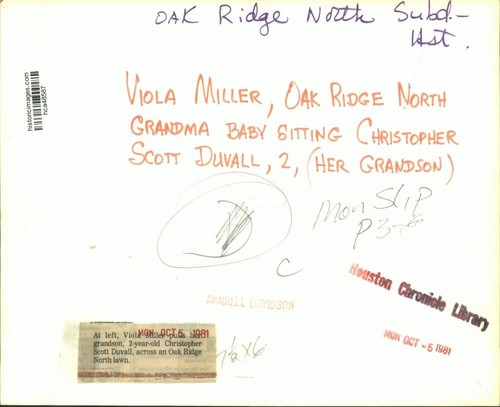 OAK Ridge North Subd.-
Hst.
historicimages.com
hca48587
VIOLA MILLER, OAK RIDGE NORTH
GRANDMA BABY SITTING CHRISTOPHER
SCOTT DUVALL, 2, (HER GRANDSON)
Mon Slip
C
DARRELL DAVIDSON
Houston Chronicle Library
MON OCT -5 1981
MON OCT 5 1981
At left, Viola Miller pulls her
grandson, 2-year-old Christopher
Scott Duvall, across an Oak Ridge
North lawn.